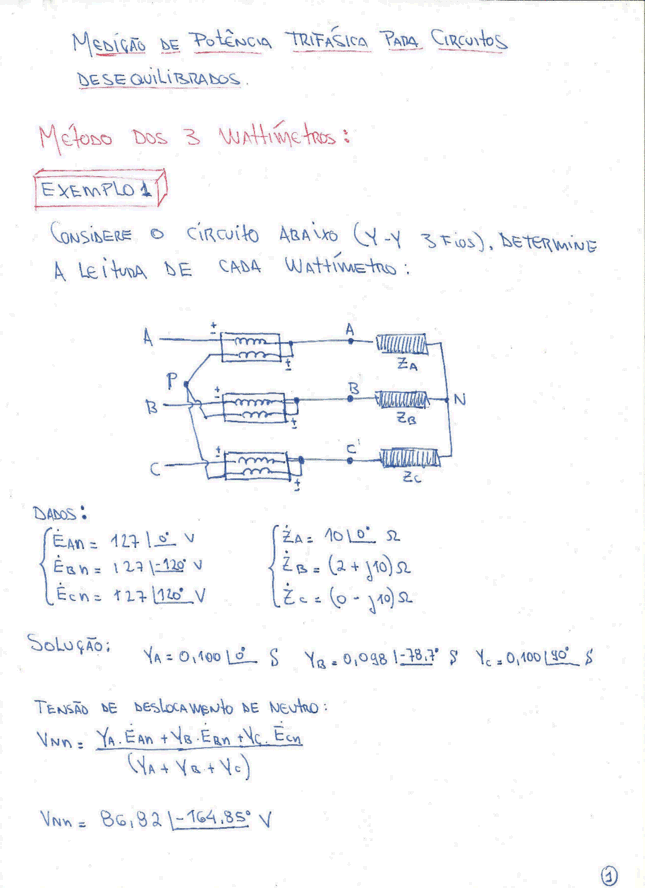 MEDIÇÃO DE POTÊNCIA TRIFÁSICA PARA CIRCUITOS
DESEQUILIBRADOS.
MÉTODO DOS 3 WATTÍMETROS:
EXEMPLO 1
CONSIDERE O CIRCUITO ABAIXO (Y-Y 3 FIOS), DETERMINE
A LEITURA DE CADA WATTÍMETRO:
A ± ± A ZA
P
B ± ± B ZB N
C ± ± C' ZC
DADOS:
ĖAn = 127 |0° V
ĖBn = 127 |-120° V
Ėcn = 127 |120° V
ŻA = 10 |0° Ω
ŻB = (2 + j10) Ω
Żc = (0 - j10) Ω
SOLUÇÃO: YA = 0,100 |0° S YB = 0,098 |-78,7° S Yc = 0,100 |90° S
TENSÃO DE DESLOCAMENTO DE NEUTRO:
VNn = YA.ĖAn + YB.ĖBn + YC.Ėcn
(YA + YB + YC)
VNn = 86,82 |-164,85° V
1